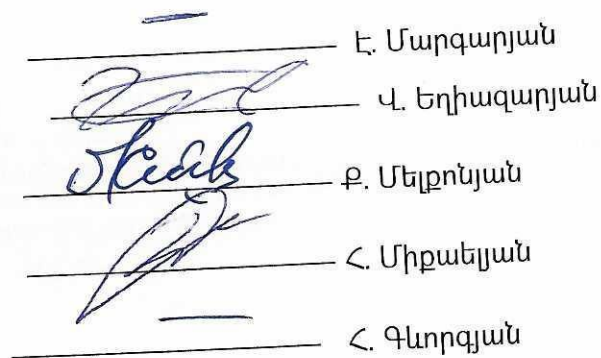 Է. Մարգարյան
Վ. Եղիազարյան
Ք. Մելքոնյան
Հ. Միքաելյան
Հ. Գևորգյան